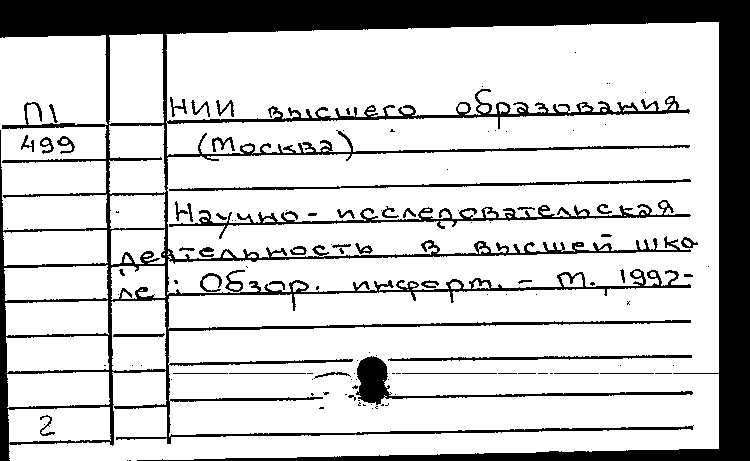 П1
499
НИИ высшего образования
(Москва)
Научно-исследовательская
деятельность в высшей шко
ле : Обзор. информ. - М., 1992-
2